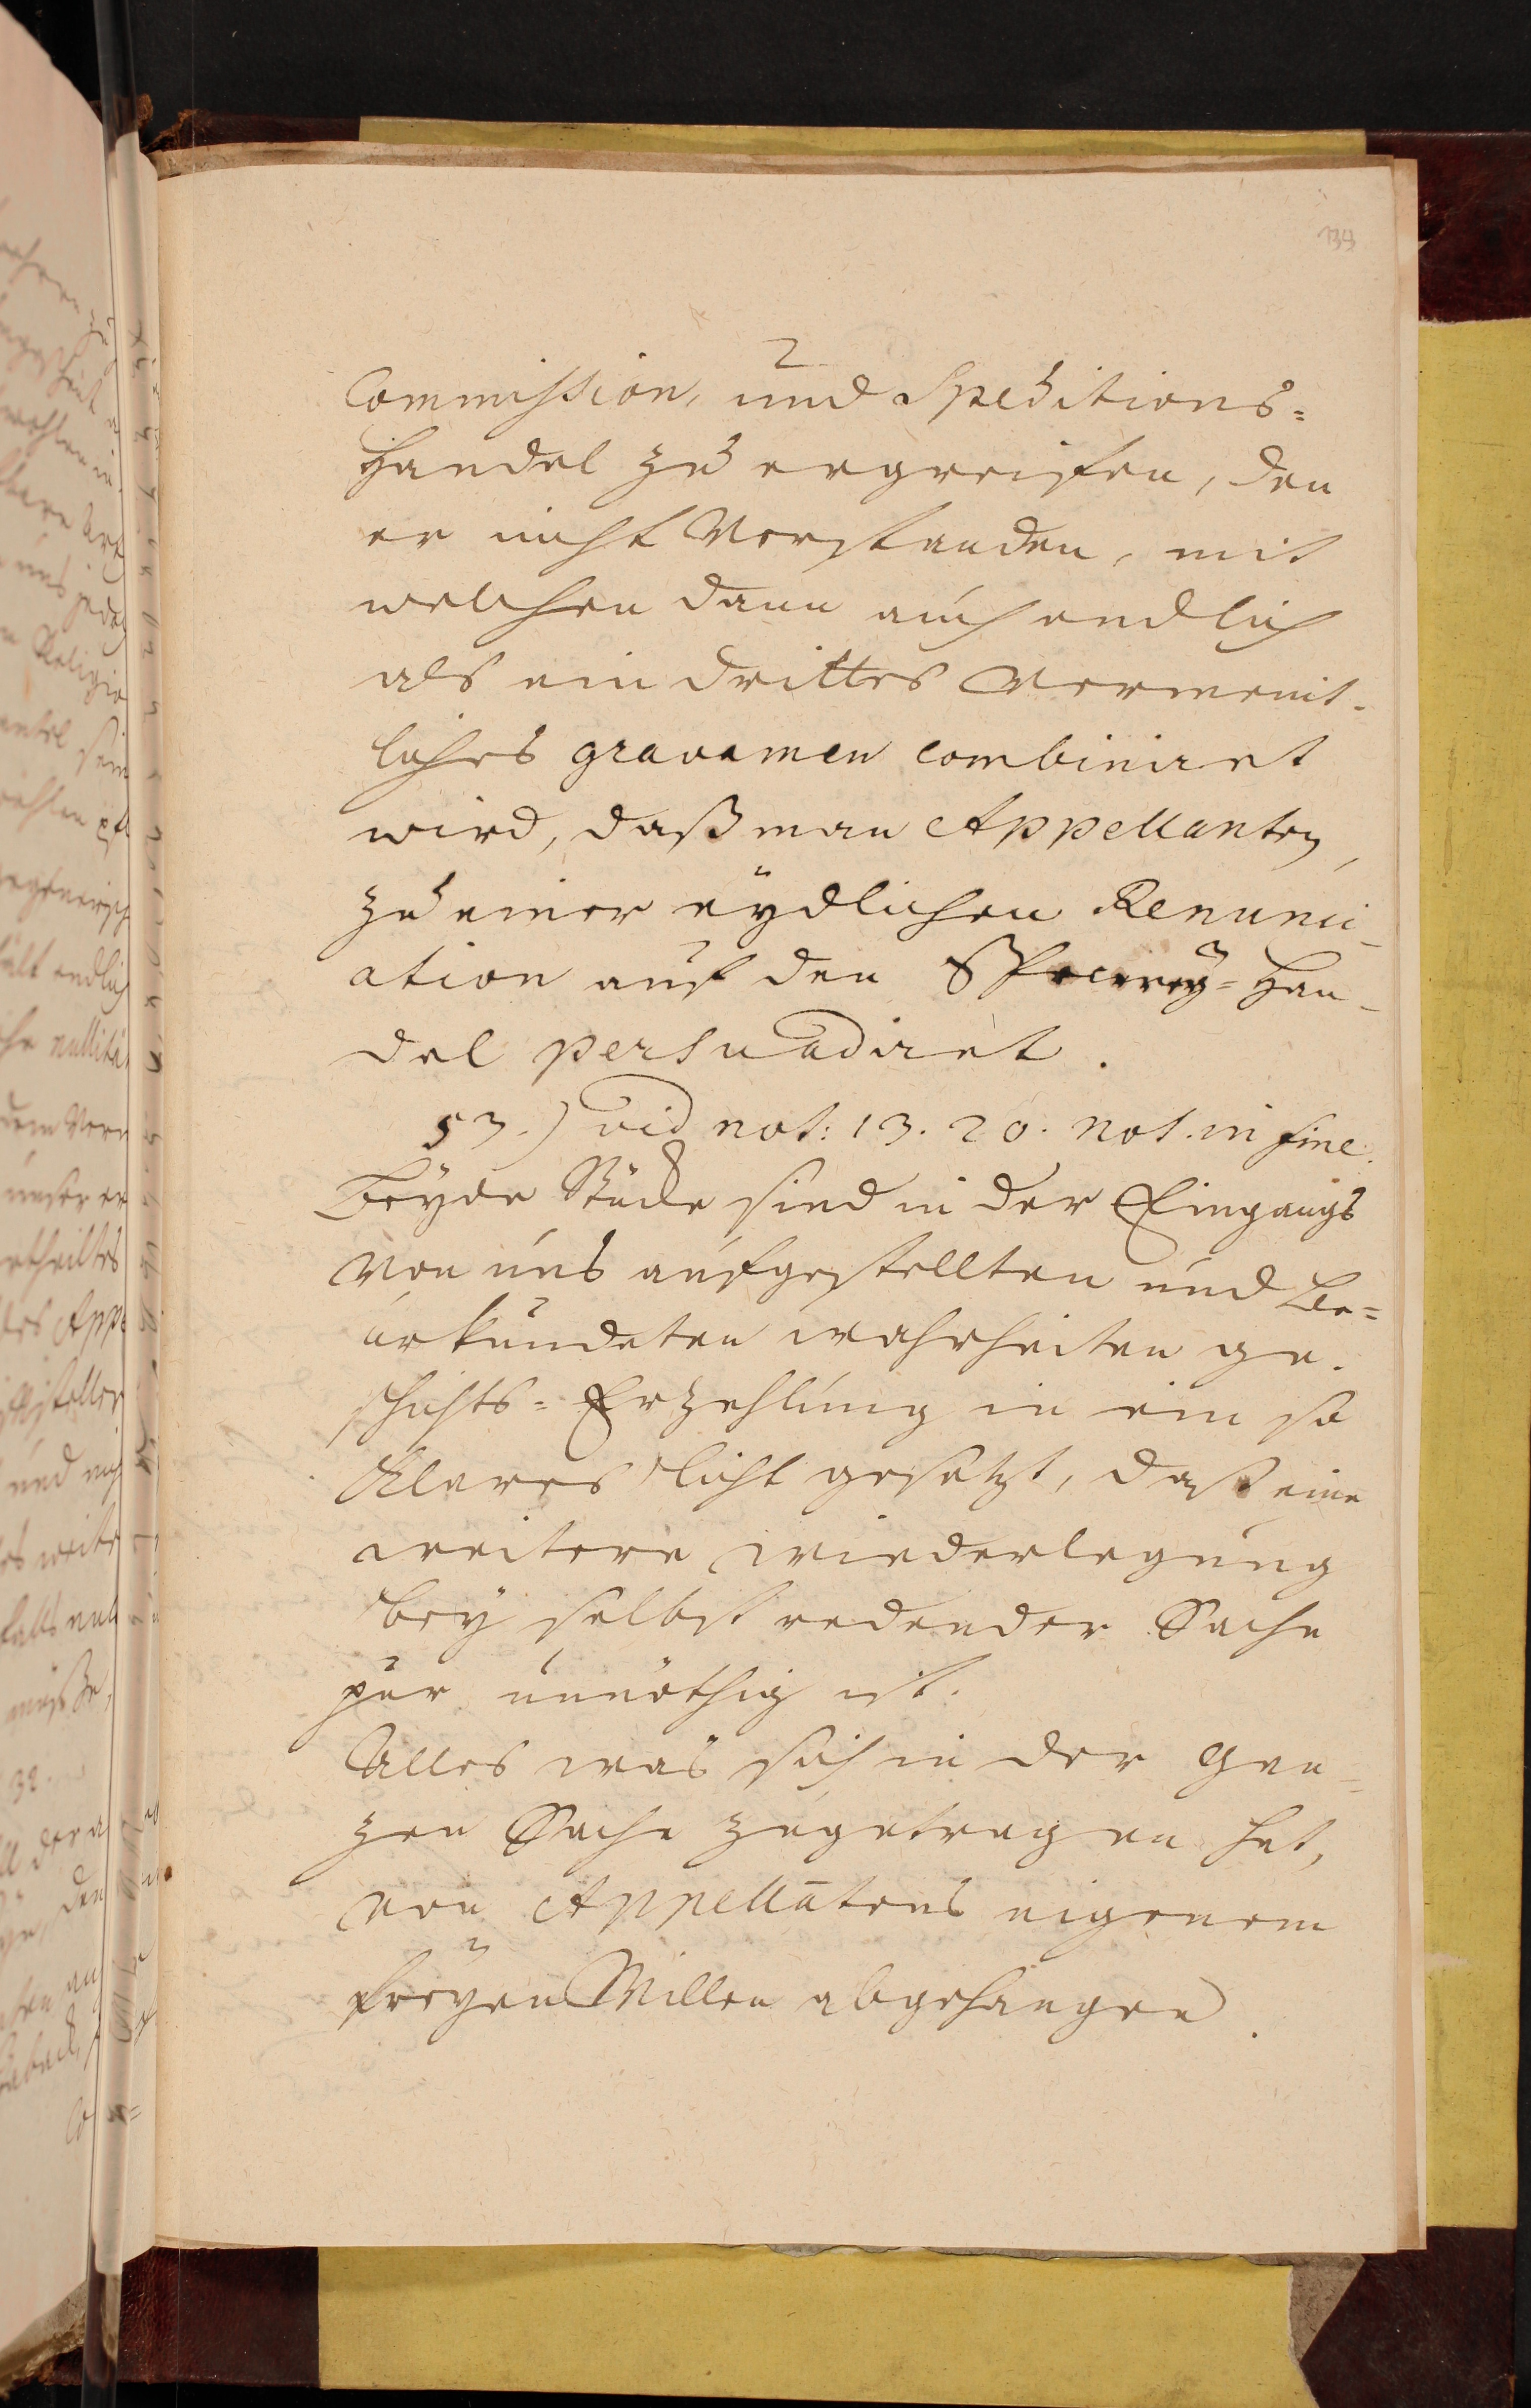 134
Commission, und Speditions=
Handel zu ergreiffen, den
er nicht Verstanden, mit
welchen dann auch endlich
als ein drittes Vermeint-
liches gravamen combiniret
wird, daß man Appellanten,
zu einer eydlichen Renunci-
ation auf den Specerey=Han-
del persuadiret.
53.) vid not: 13. 20. not. in fine.
Beyde Stücke sind in der Eingangs
von uns aufgestellten und be=
urkundeten wahrheiten ge-
schichts=Erzehlung in ein so
Klares licht gesetzt, daß eine
weitere wiederlegung
bey selbst redender Sache
pur unnöthig ist.
Alles was sich in der gan=
zen Sache zugetragen hat,
von Appellatens eigenem
freyen Willen abgehangen.